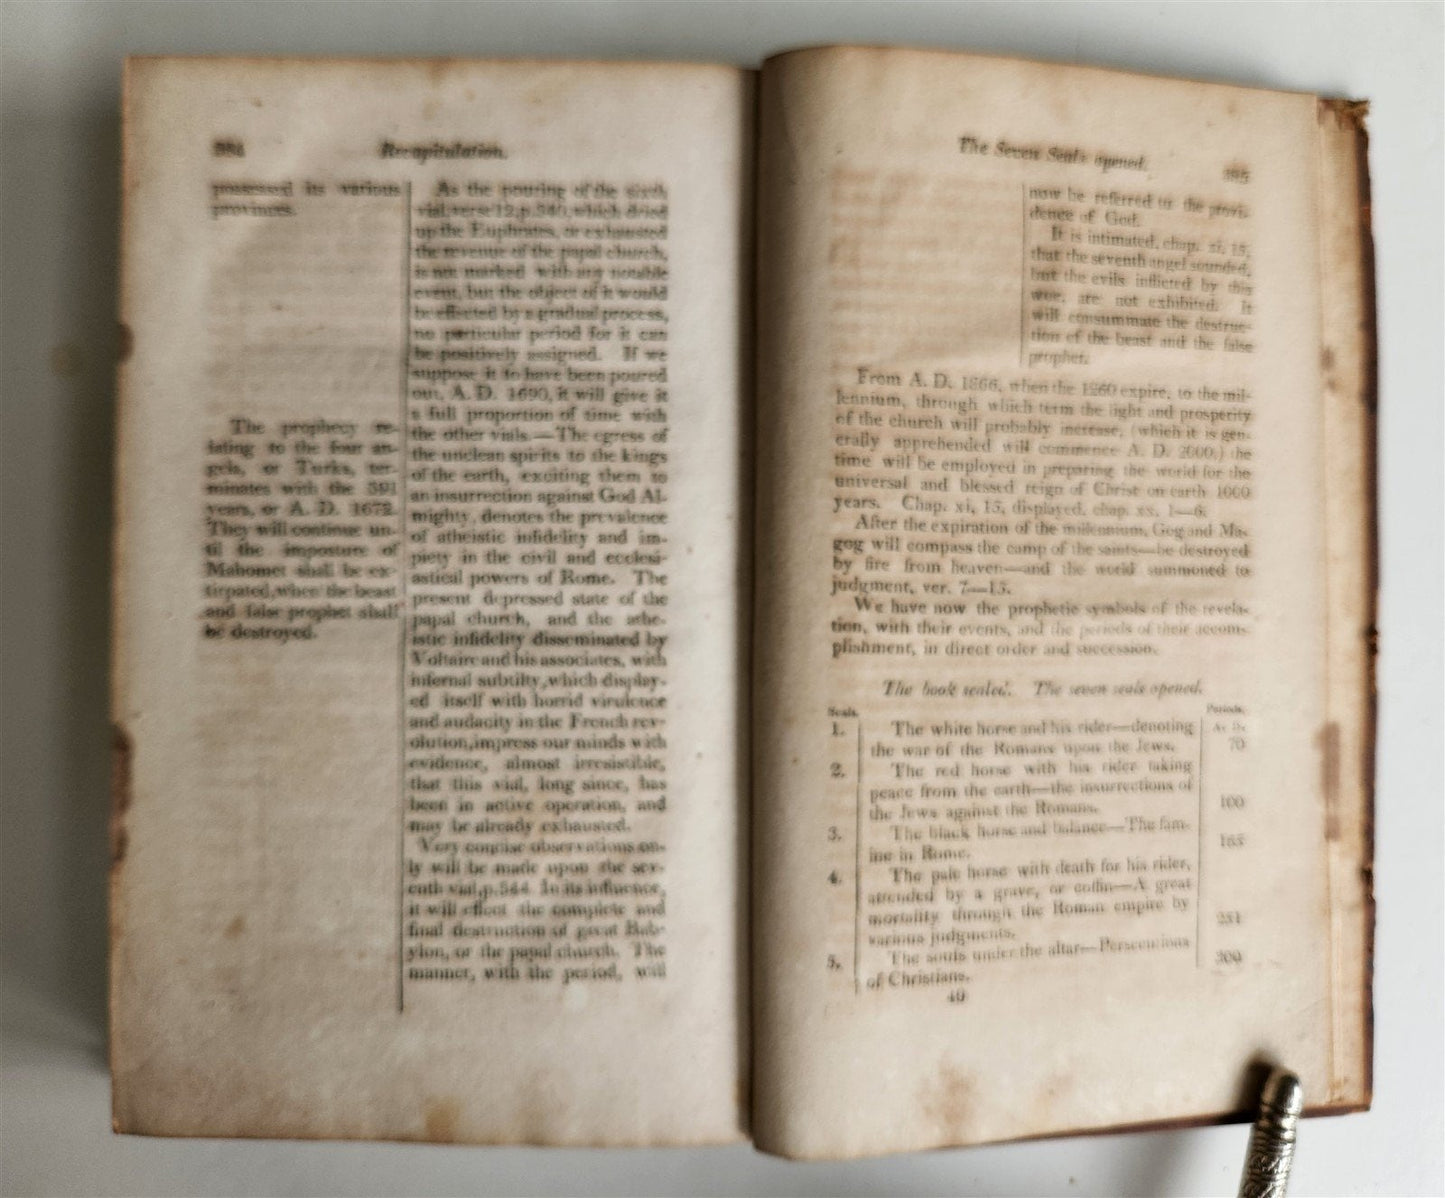 384 Recapitulation.
possessed its various
provinces.
The prophecy re-
lating to the four an-
gels, or Turks, ter-
minates with the 391
years, or A. D. 1672.
They will continue un-
til the imposture of
Mahomet shall be ex-
tirpated, when the beast
and false prophet shall
be destroyed.
As the pouring of the sixth
vial, verse 12, p. 340, which dried
up the Euphrates, or exhausted
the revenue of the papal church,
is not marked with any notable
event, but the object of it would
be effected by a gradual process,
no particular period for it can
be positively assigned. If we
suppose it to have been poured
out, A. D. 1690, it will give it
a full proportion of time with
the other vials.—The egress of
the unclean spirits to the kings
of the earth, exciting them to
an insurrection against God Al-
mighty, denotes the prevalence
of atheistic infidelity and im-
piety in the civil and ecclesi-
astical powers of Rome. The
present depressed state of the
papal church, and the athe-
istic infidelity disseminated by
Voltaire and his associates, with
infernal subtilty, which display-
ed itself with horrid virulence
and audacity in the French rev-
olution, impress our minds with
evidence, almost irresistible,
that this vial, long since, has
been in active operation, and
may be already exhausted.
Very concise observations on-
ly will be made upon the sev-
enth vial, p. 344. In its influence,
it will effect the complete and
final destruction of great Bab-
ylon, or the papal church. The
manner, with the period, will
The Seven Seals opened. 385
now be referred to the provi-
dence of God.
It is intimated, chap. xi, 15,
that the seventh angel sounded,
but the evils inflicted by this
woe, are not exhibited. It
will consummate the destruc-
tion of the beast and the false
prophet.
From A. D. 1866, when the 1260 expire, to the mil-
lennium, through which term the light and prosperity
of the church will probably increase, (which it is gen-
erally apprehended will commence A. D. 2000,) the
time will be employed in preparing the world for the
universal and blessed reign of Christ on earth 1000
years. Chap. xi, 15, displayed, chap. xx, 1—6.
After the expiration of the millennium, Gog and Ma-
gog will compass the camp of the saints—be destroyed
by fire from heaven—and the world summoned to
judgment, ver. 7—15.
We have now the prophetic symbols of the revela-
tion, with their events, and the periods of their accom-
plishment, in direct order and succession.
The book sealed. The seven seals opened.
Seals. Periods.
1. The white horse and his rider—denoting A. D.
the war of the Romans upon the Jews. 70
2. The red horse with his rider taking
peace from the earth—the insurrections of
the Jews against the Romans. 100
3. The black horse and balance—The fam-
ine in Rome. 165
4. The pale horse with death for his rider,
attended by a grave, or coffin—A great
mortality through the Roman empire by
various judgments. 251
5. The souls under the altar—Persecutions
of Christians. 300
49